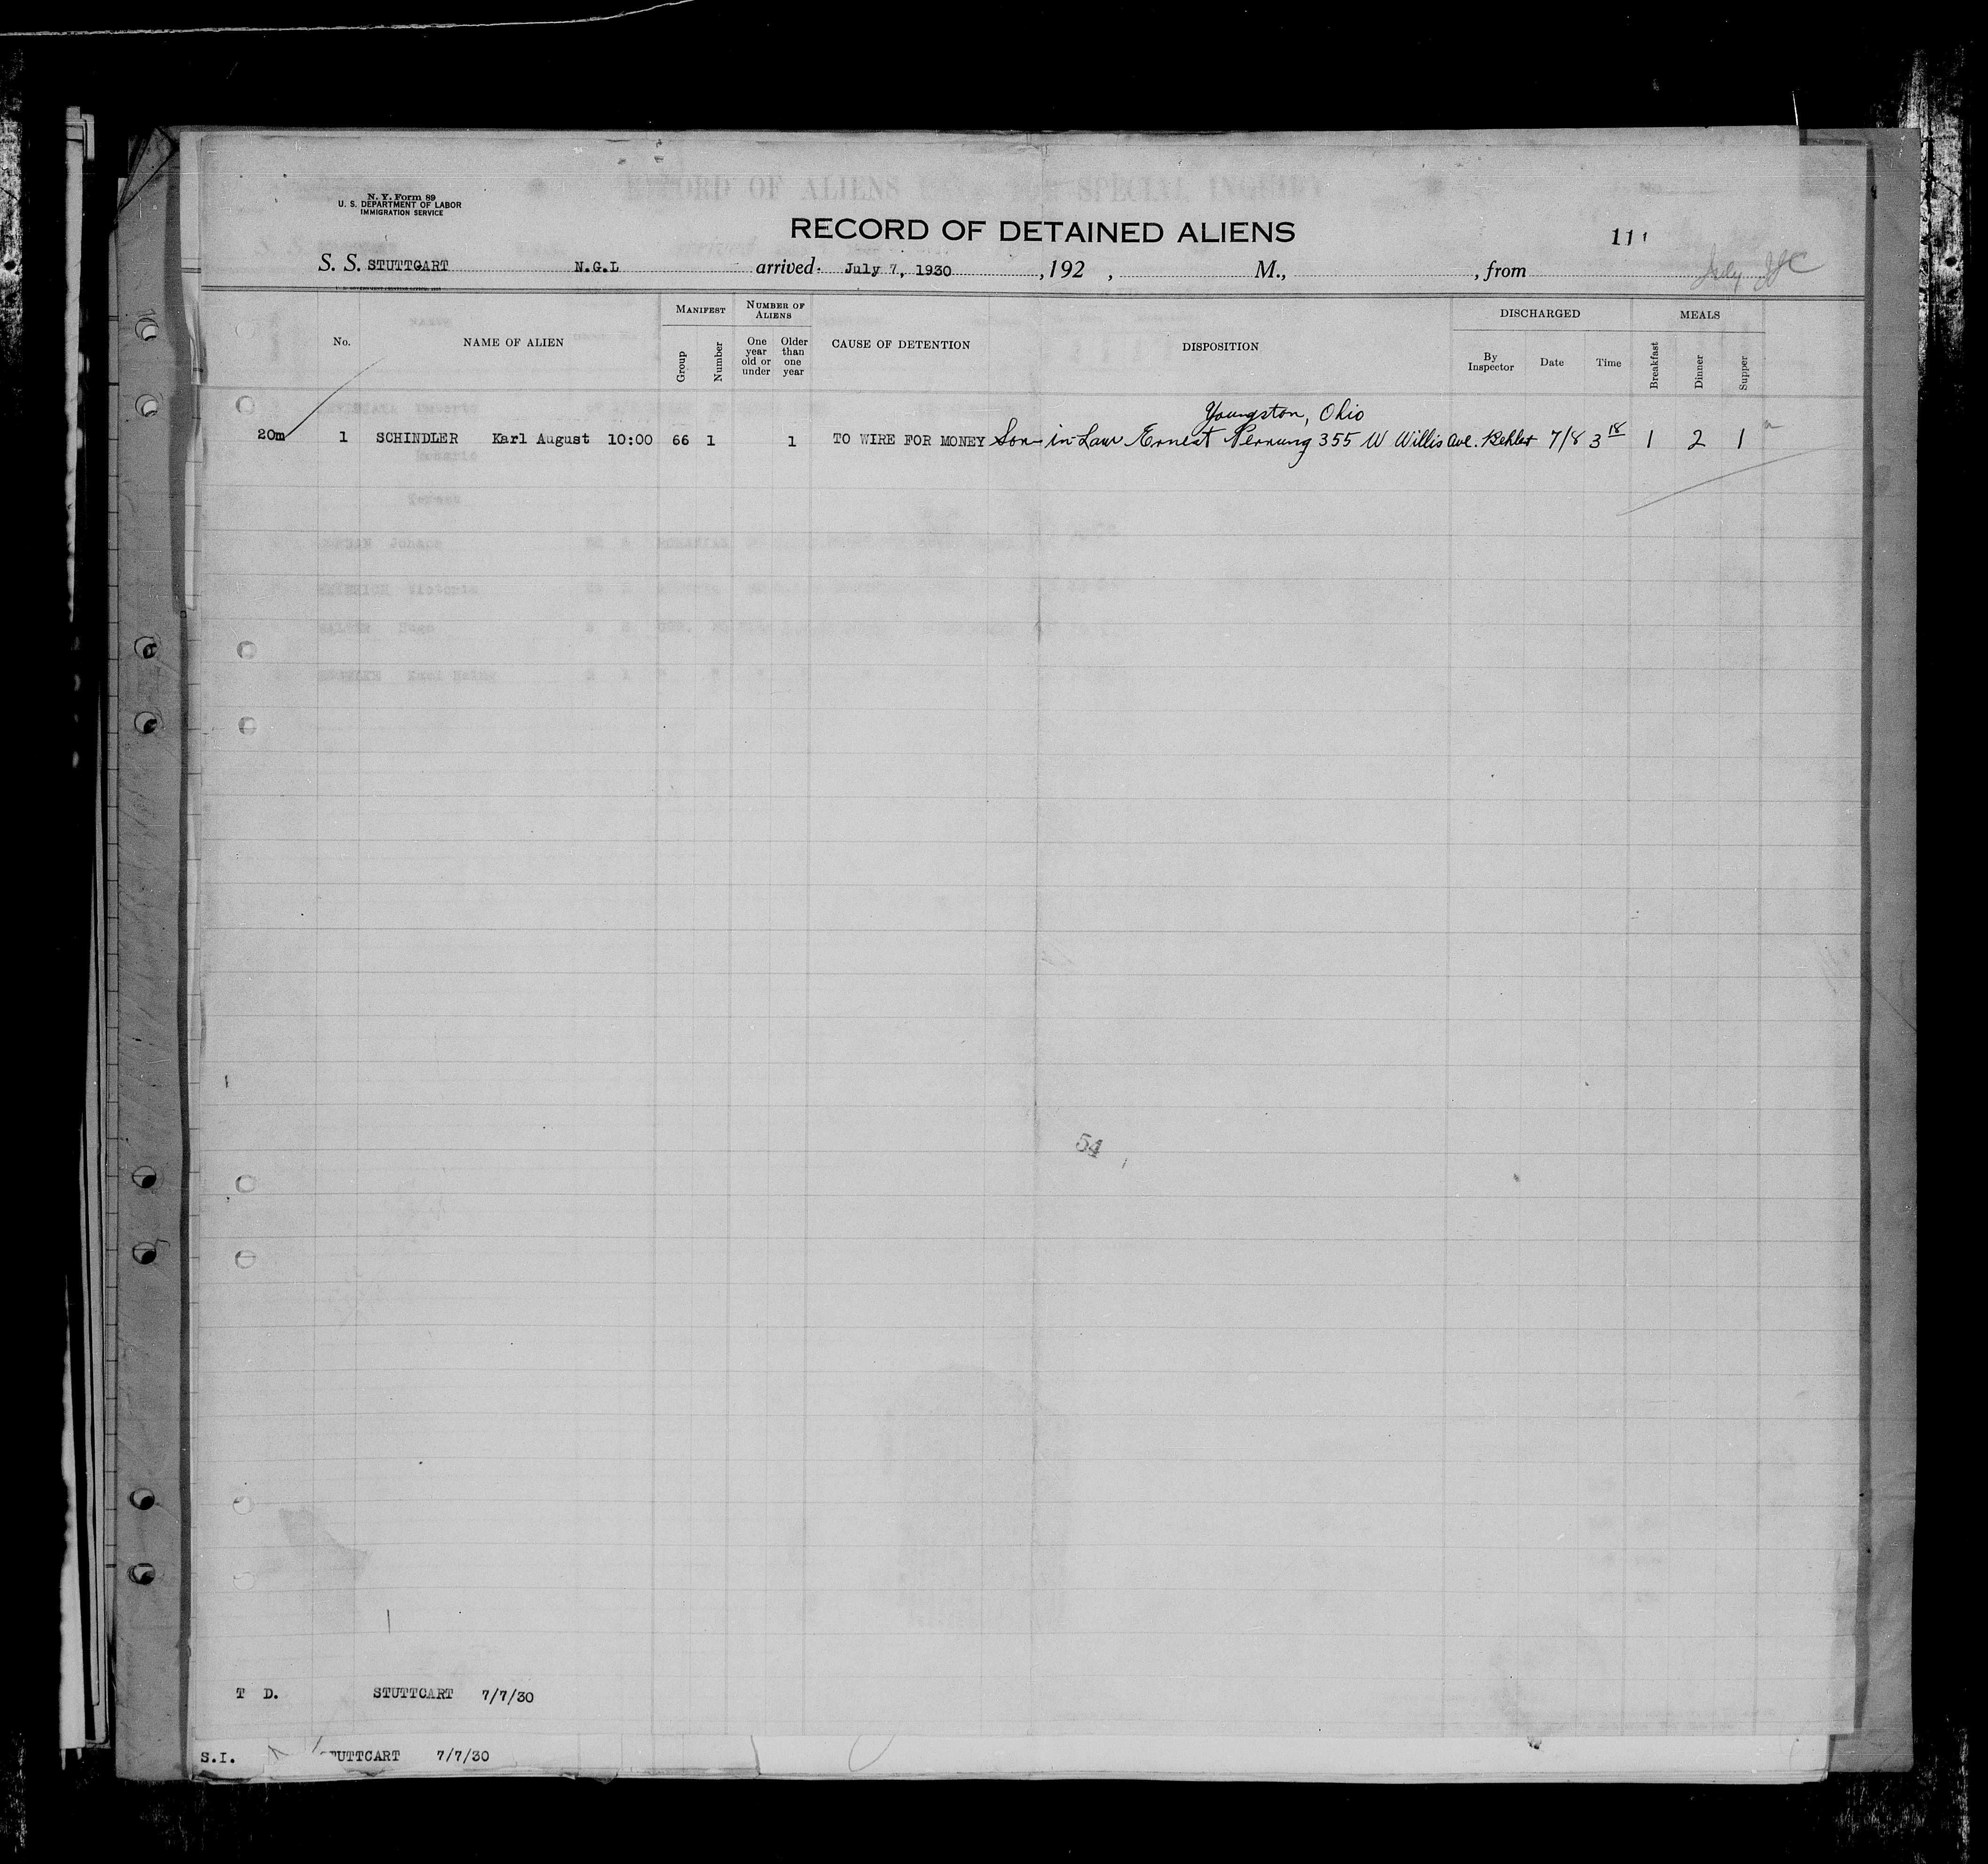 N. Y. Form 89
U. S. DEPARTMENT OF LABOR
IMMIGRATION SERVICE
RECORD OF DETAINED ALIENS
11
S. S. STUTTGART N.G.L arrived July 7, 1930, 192 , M., , from
No. NAME OF ALIEN MANIFEST NUMBER OF ALIENS CAUSE OF DETENTION DISPOSITION DISCHARGED MEALS
Group Number One year old or under Older than one year By Inspector Date Time Breakfast Dinner Supper
Youngston, Ohio
20m 1 SCHINDLER Karl August 10:00 66 1 1 TO WIRE FOR MONEY Son-in-Law Ernest 355 W Willis Ave. 7/8 3 18 1 2 1
54
T D. STUTTGART 7/7/30
S.I. TUTTGART 7/7/30